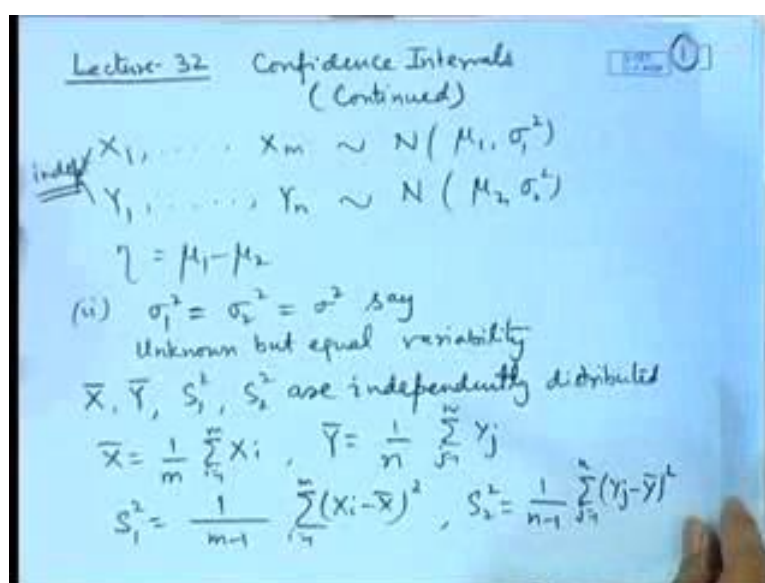 Lecture- 32 Confidence Intervals
(Continued)
1
indep X₁, ..... Xₘ ~ N( μ₁, σ₁²)
Y₁, ......, Yₙ ~ N ( μ₂, σ₂²)
η = μ₁-μ₂
(ii) σ₁² = σ₂² = σ² say
Unknown but equal variability
X̄, Ȳ, S₁², S₂² are independently distributed
X̄ = 1/m Σᵢ₌₁ᵐ Xᵢ , Ȳ = 1/n Σⱼ₌₁ⁿ Yⱼ
S₁² = 1/(m-1) Σᵢ₌₁ᵐ (Xᵢ-X̄)² , S₂² = 1/(n-1) Σⱼ₌₁ⁿ (Yⱼ-Ȳ)²